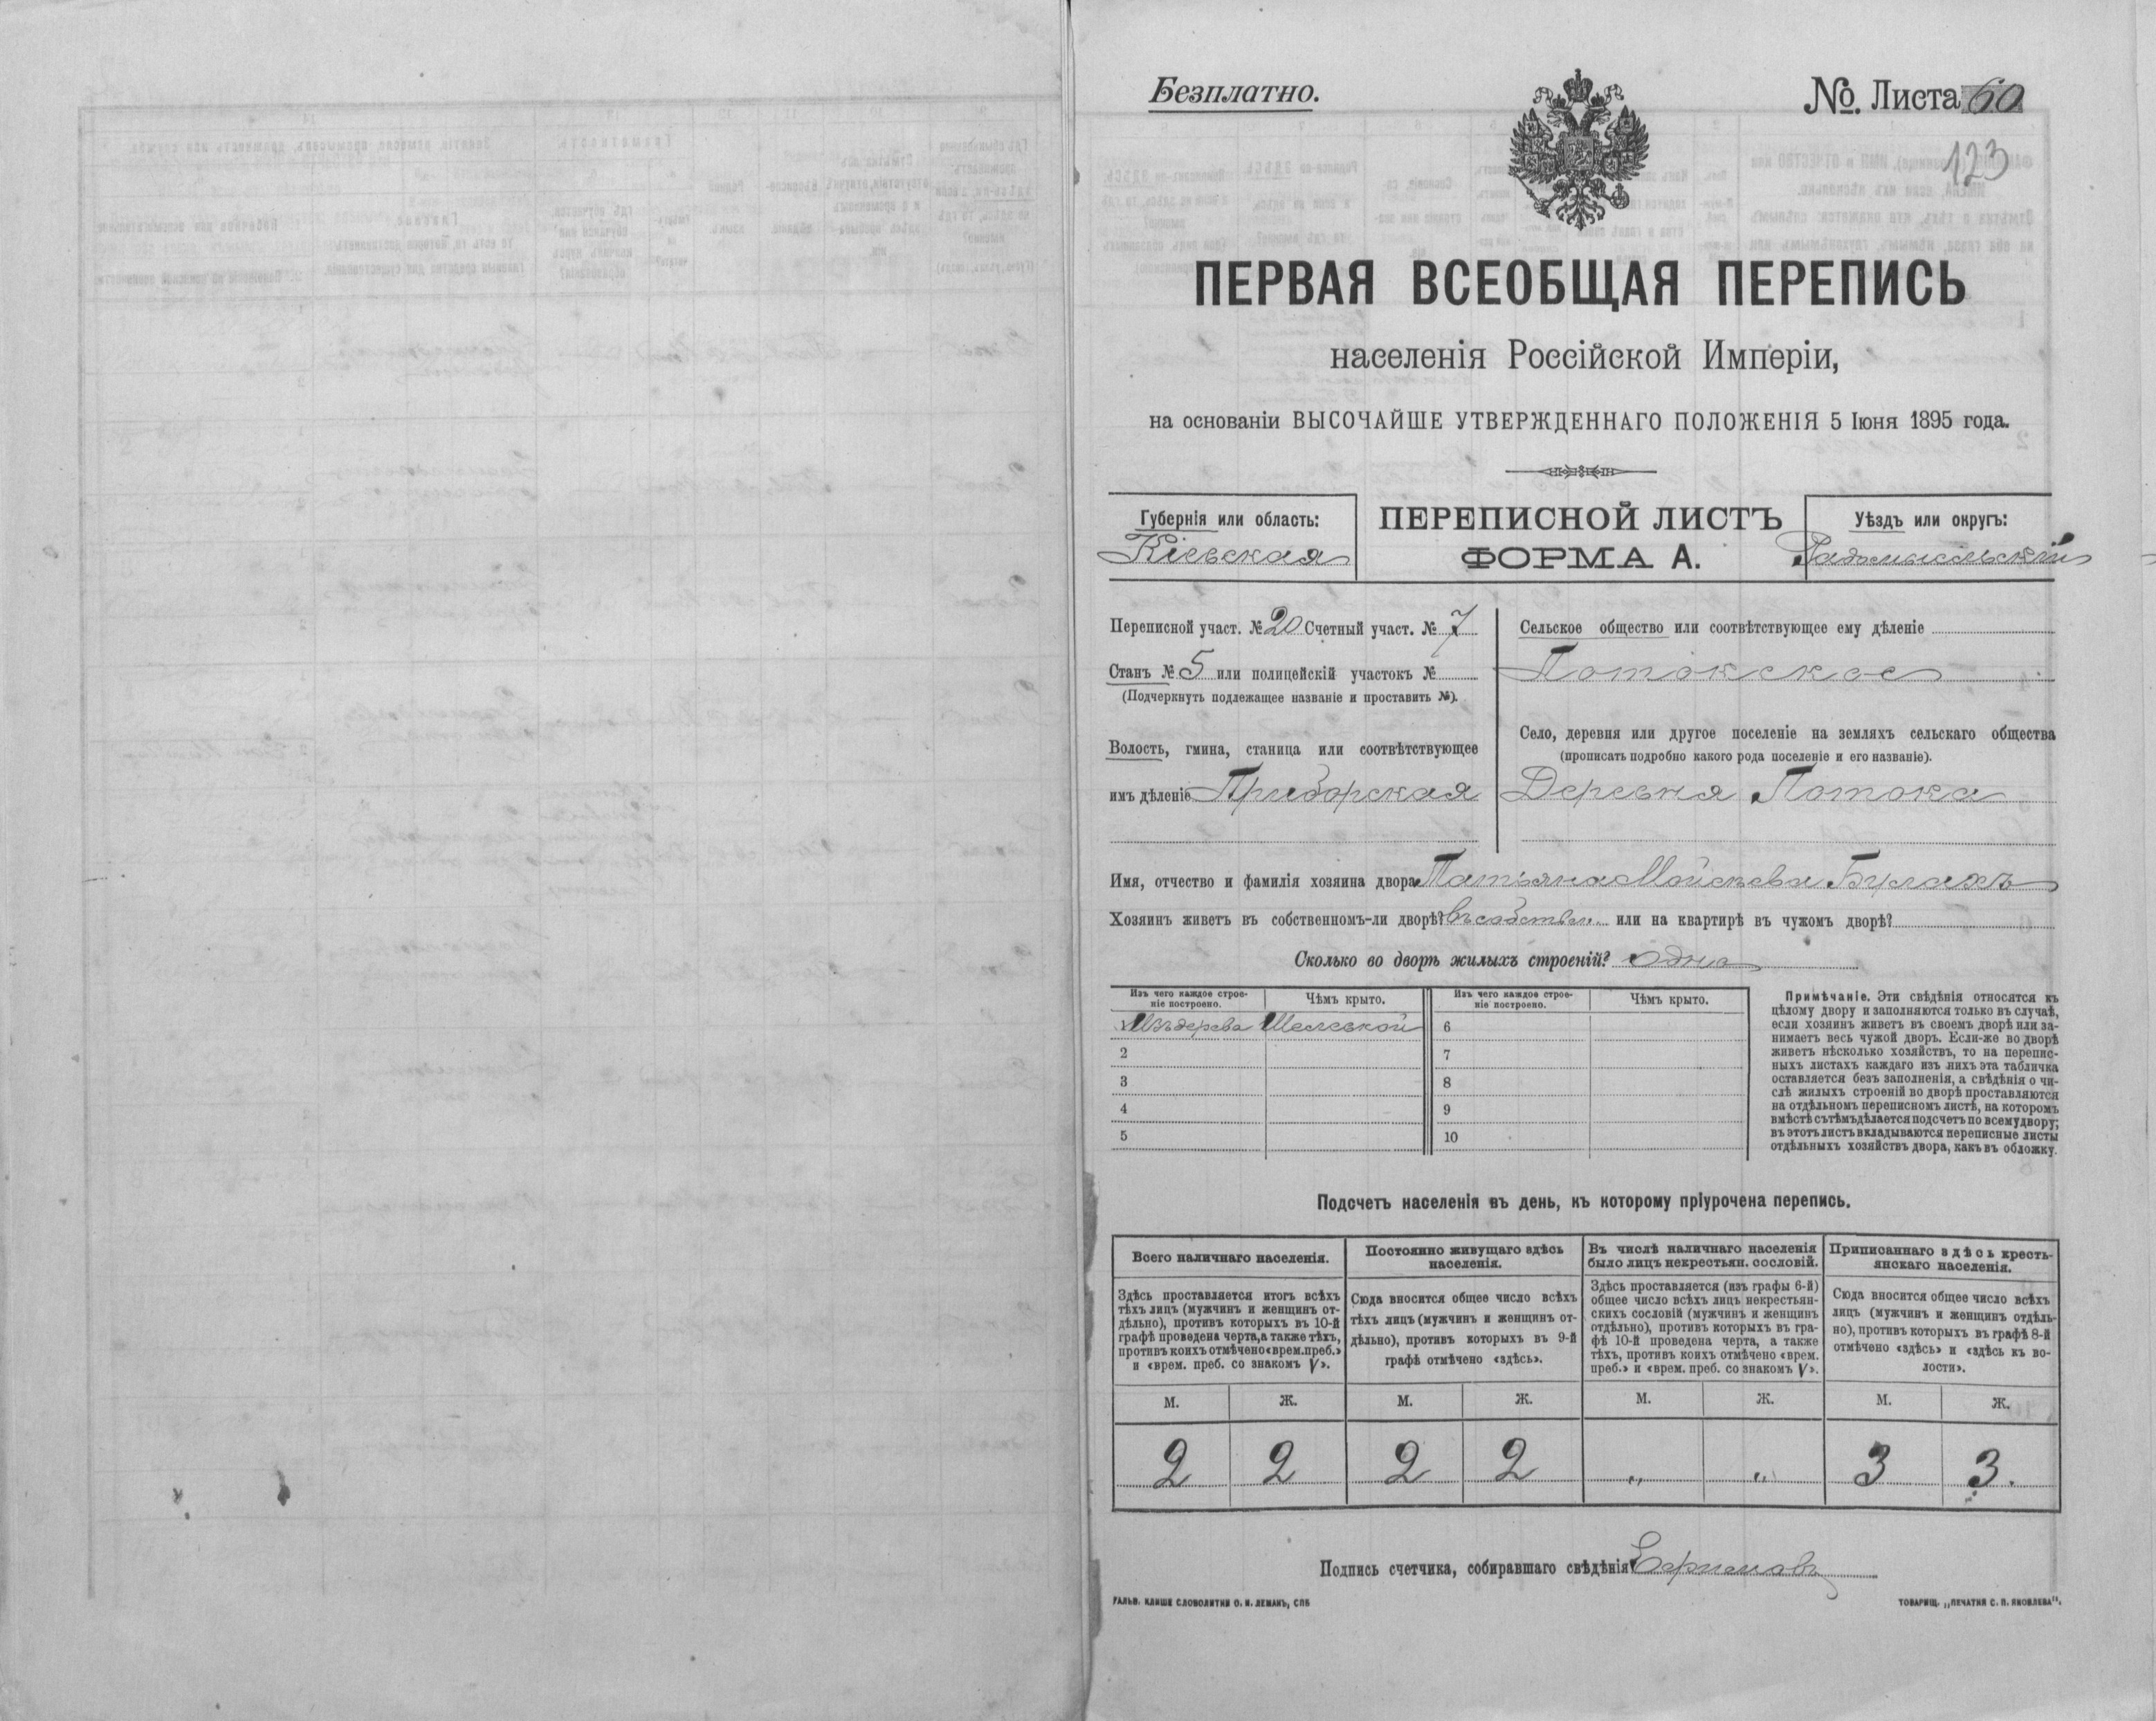 Безплатно.
№. Листа 60
123
ПЕРВАЯ ВСЕОБЩАЯ ПЕРЕПИСЬ
населенія Россійской Имперіи,
на основаніи ВЫСОЧАЙШЕ УТВЕРЖДЕННАГО ПОЛОЖЕНІЯ 5 Іюня 1895 года.
Губернія или область:
Кіевская
ПЕРЕПИСНОЙ ЛИСТЪ
ФОРМА А.
Уѣздъ или округъ:
Радомысльскій
Переписной участ. № 20 Счетный участ. № 7
Станъ № 5 или полицейскій участокъ №
(Подчеркнуть подлежащее названіе и проставить №).
Волость, гмина, станица или соотвѣтствующее
имъ дѣленіе Приборская
Сельское общество или соотвѣтствующее ему дѣленіе
Потокское
Село, деревня или другое поселеніе на земляхъ сельскаго общества
(прописать подробно какого рода поселеніе и его названіе).
Деревня Потока
Имя, отчество и фамилія хозяина двора Татьяна Мойсѣева Булахъ
Хозяинъ живетъ въ собственномъ-ли дворѣ? въ собствен. или на квартирѣ въ чужомъ дворѣ?
Сколько во дворѣ жилыхъ строеній? одно
Изъ чего каждое строе-
ніе построено.
Чѣмъ крыто.
Изъ чего каждое строе-
ніе построено.
Чѣмъ крыто.
1 Изъ дерева Шелевкой 6
2 7
3 8
4 9
5 10
Примѣчаніе. Эти свѣдѣнія относятся къ
цѣлому двору и заполняются только въ случаѣ,
если хозяинъ живетъ въ своемъ дворѣ или за-
нимаетъ весь чужой дворъ. Если-же во дворѣ
живетъ нѣсколько хозяйствъ, то на перепис-
ныхъ листахъ каждаго изъ нихъ эта табличка
оставляется безъ заполненія, а свѣдѣнія о чи-
слѣ жилыхъ строеній во дворѣ проставляются
на отдѣльномъ переписномъ листѣ, на которомъ
вмѣстѣ съ тѣмъ дѣлается подсчетъ по всему двору;
въ этотъ листъ вкладываются переписные листы
отдѣльныхъ хозяйствъ двора, какъ въ обложку.
Подсчетъ населенія въ день, къ которому пріурочена перепись.
Всего наличнаго населенія.
Здѣсь проставляется итогъ всѣхъ
тѣхъ лицъ (мужчинъ и женщинъ от-
дѣльно), противъ которыхъ въ 10-й
графѣ проведена черта, а также тѣхъ,
противъ коихъ отмѣчено «врем. преб.»
и «врем. преб. со знакомъ V».
Постоянно живущаго здѣсь
населенія.
Сюда вносится общее число всѣхъ
тѣхъ лицъ (мужчинъ и женщинъ от-
дѣльно), противъ которыхъ въ 9-й
графѣ отмѣчено «здѣсь».
Въ числѣ наличнаго населенія
было лицъ некрестьян. сословій.
Здѣсь проставляется (изъ графы 6-й)
общее число всѣхъ лицъ некрестьян-
скихъ сословій (мужчинъ и женщинъ
отдѣльно), противъ которыхъ въ гра-
фѣ 10-й проведена черта, а также
тѣхъ, противъ коихъ отмѣчено «врем.
преб.» и «врем. преб. со знакомъ V».
Приписаннаго здѣсь кресть-
янскаго населенія.
Сюда вносится общее число всѣхъ
лицъ (мужчинъ и женщинъ отдѣль-
но), противъ которыхъ въ графѣ 8-й
отмѣчено «здѣсь» и «здѣсь къ во-
лости».
М. Ж. М. Ж. М. Ж. М. Ж.
2 2 2 2 „ „ 3 3.
Подпись счетчика, собиравшаго свѣдѣнія
ГАЛЬВ. КЛИШЕ СЛОВОЛИТНИ О. И. ЛЕМАНЪ, СПБ
ТОВАРИЩ. „ПЕЧАТНЯ С. П. ЯКОВЛЕВА".